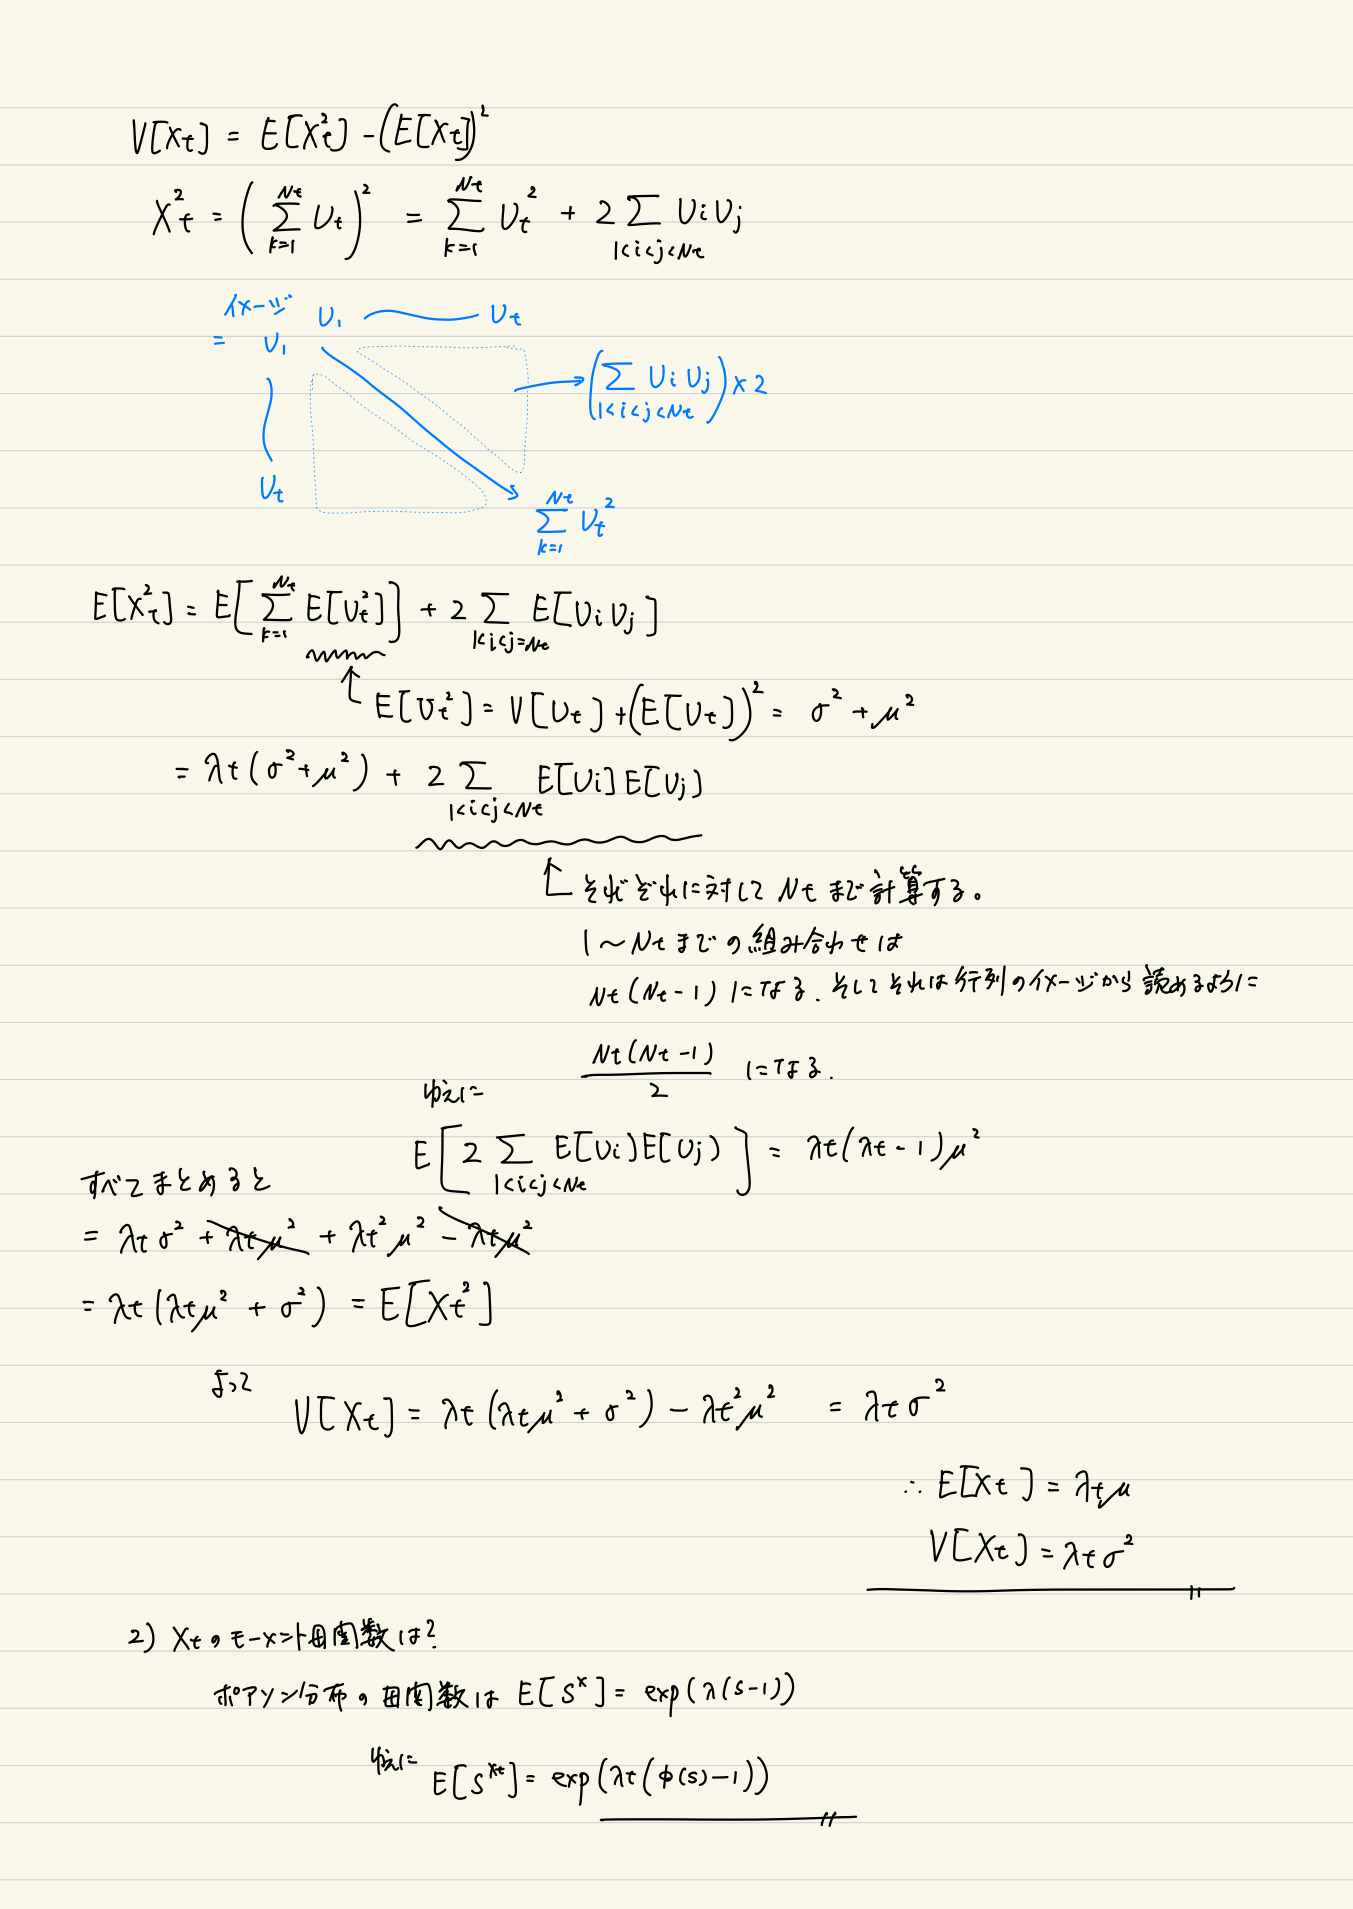 V[Xt] = E[Xt²] - (E[Xt])²
Xt² = ( Σ_{k=1}^{Nt} Ut )² = Σ_{k=1}^{Nt} Ut² + 2 Σ_{1<i<j<Nt} Ui Uj
イメージ
= U1 〜 Ut
U1
Ut
( Σ_{1<i<j<Nt} Ui Uj ) × 2
Σ_{k=1}^{Nt} Ut²
E[Xt²] = E[ Σ_{k=1}^{Nt} E[Ut²] ] + 2 Σ_{1<i<j=Nt} E[Ui Uj]
E[Ut²] = V[Ut] + (E[Ut])² = σ² + μ²
= λt(σ²+μ²) + 2 Σ_{1<i<j<Nt} E[Ui] E[Uj]
それぞれに対して Nt まで計算する。
1〜Ntまでの組み合わせは
Nt(Nt-1) になる. そしてそれは行列のイメージから読めるように
Nt(Nt-1)/2 になる.
ゆえに
E[ 2 Σ_{1<i<j<Nt} E[Ui)E[Uj) ] = λt(λt-1)μ²
すべてまとめると
= λtσ² + λtμ² + λt²μ² - λtμ²
= λt(λtμ² + σ²) = E[Xt²]
よって
V[Xt] = λt(λtμ² + σ²) - λt²μ² = λtσ²
∴ E[Xt] = λtμ
V[Xt] = λtσ²
2) Xtのモーメント母関数は?
ポアソン分布の母関数は E[S^x] = exp(λ(s-1))
ゆえに
E[S^{Xt}] = exp(λt(φ(s)-1))